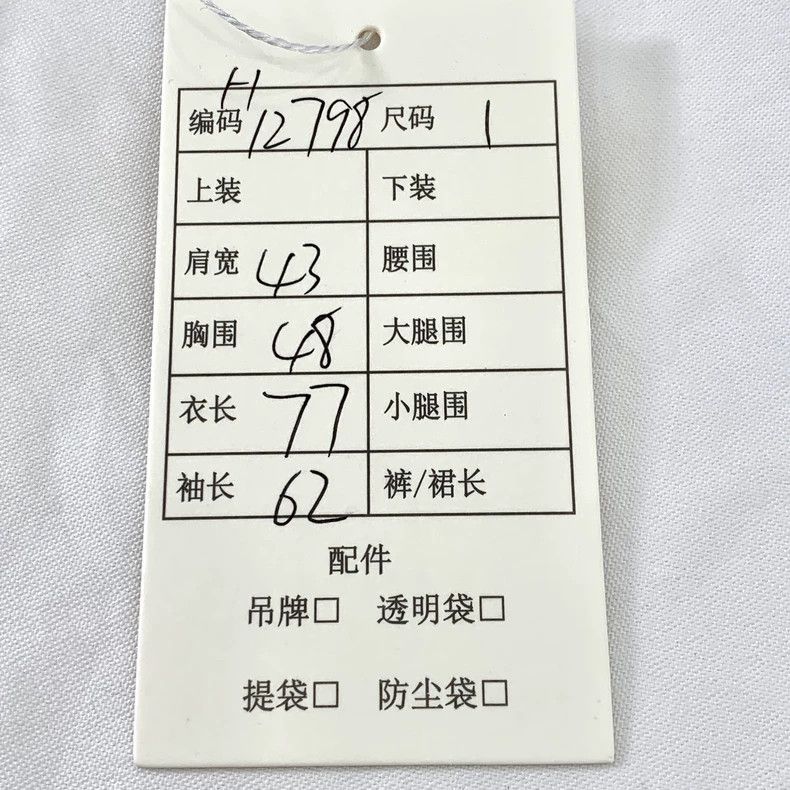 编码 H12798 尺码 1
上装 下装
肩宽 43 腰围
胸围 48 大腿围
衣长 77 小腿围
袖长 62 裤/裙长
配件
吊牌□ 透明袋□
提袋□ 防尘袋□